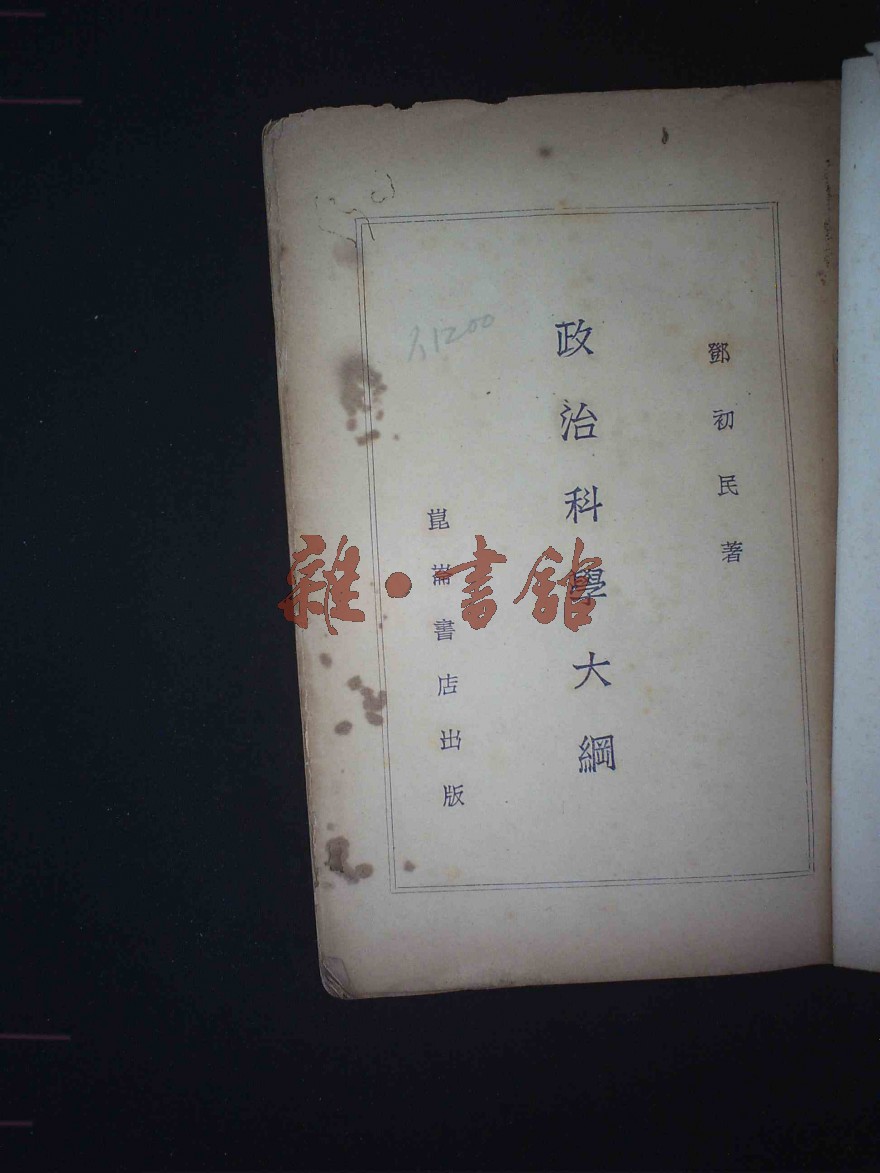 鄧初民著
政治科學大綱
崑崙書店出版
雜·書館
1200